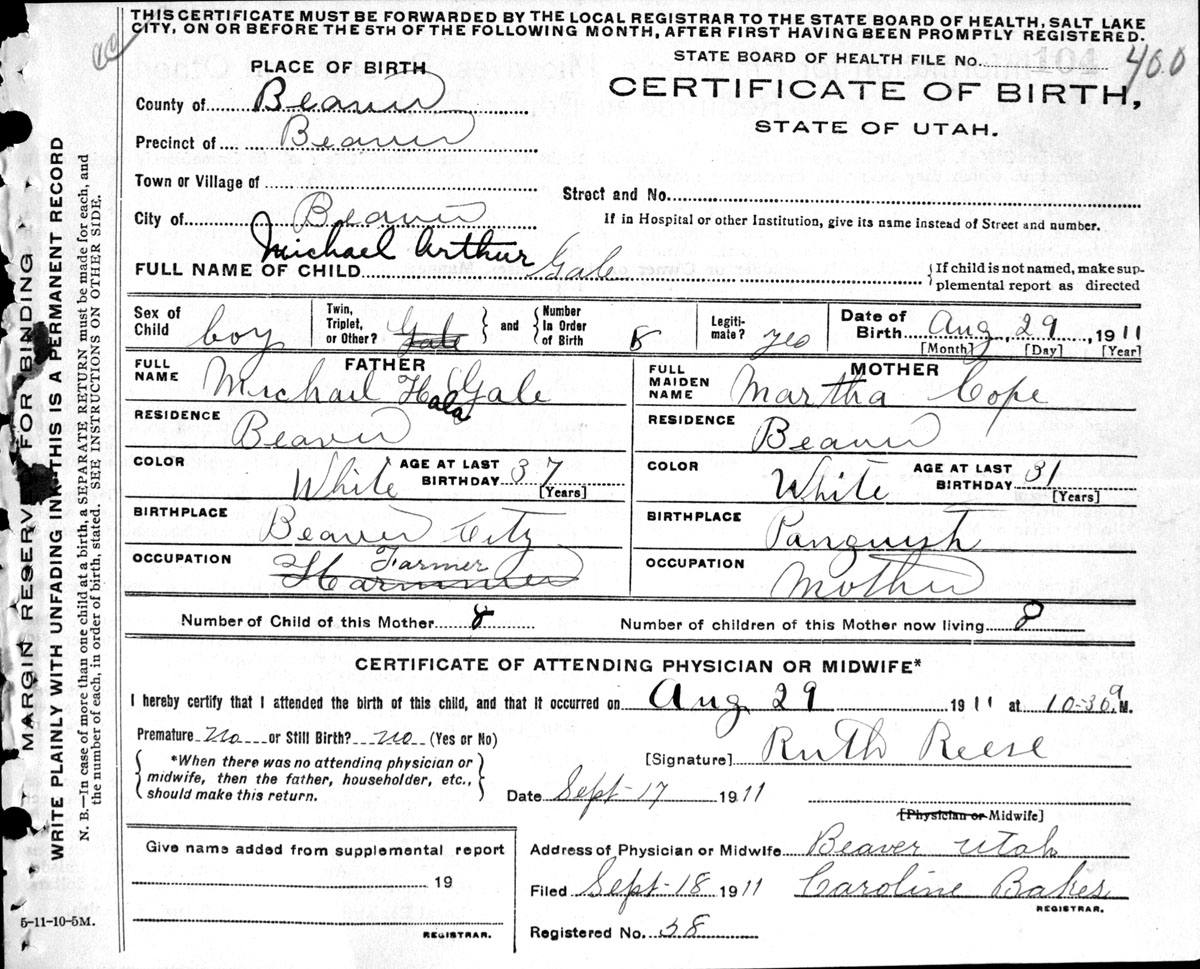 THIS CERTIFICATE MUST BE FORWARDED BY THE LOCAL REGISTRAR TO THE STATE BOARD OF HEALTH, SALT LAKE
CITY, ON OR BEFORE THE 5TH OF THE FOLLOWING MONTH, AFTER FIRST HAVING BEEN PROMPTLY REGISTERED.
STATE BOARD OF HEALTH FILE No. 104 400
PLACE OF BIRTH
CERTIFICATE OF BIRTH,
STATE OF UTAH.
County of Beaver
Precinct of Beaver
Town or Village of
Street and No.
City of Beaver
If in Hospital or other Institution, give its name instead of Street and number.
Michael Arthur
FULL NAME OF CHILD Gale
{If child is not named, make sup-
plemental report as directed
Sex of Child boy
Twin, Triplet, or Other? Gale } and { Number In Order of Birth 8
Legiti-mate? yes
Date of Birth Aug 29, 1911
[Month] [Day] [Year]
FATHER
FULL NAME Michail H Gale
ala
RESIDENCE Beaver
COLOR White AGE AT LAST BIRTHDAY 37
[Years]
BIRTHPLACE Beaver City
OCCUPATION Farmer
MOTHER
FULL MAIDEN NAME Martha Cope
RESIDENCE Beaver
COLOR White AGE AT LAST BIRTHDAY 31
[Years]
BIRTHPLACE Panguish
OCCUPATION Mother
Number of Child of this Mother 8 Number of children of this Mother now living 8
CERTIFICATE OF ATTENDING PHYSICIAN OR MIDWIFE*
I hereby certify that I attended the birth of this child, and that it occurred on Aug 29 1911 at 10-30 a M.
Premature No or Still Birth? no (Yes or No)
*When there was no attending physician or
midwife, then the father, householder, etc.,
should make this return.
[Signature] Ruth Reese
Date Sept-17 1911
[Physician or Midwife]
Give name added from supplemental report
19
REGISTRAR.
Address of Physician or Midwife Beaver Utah
Filed Sept-18 1911 Caroline Bakes
REGISTRAR.
Registered No. 58
5-11-10-5M.
MARGIN RESERV FOR BINDING
WRITE PLAINLY WITH UNFADING INK—THIS IS A PERMANENT RECORD
N. B.—In case of more than one child at a birth, a SEPARATE RETURN must be made for each, and
the number of each, in order of birth, stated. SEE INSTRUCTIONS ON OTHER SIDE.